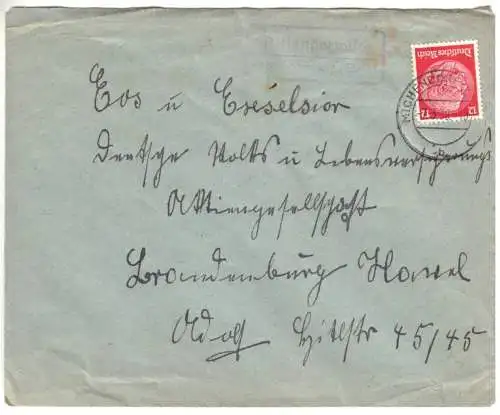 Deutsches Reich
12 12
MICHENDORF
Eos u Exselsior
Deutsche Volks u Lebensversicherungs
Aktiengesellschaft
Brandenburg Havel
Adolf Hitlstr 45/45